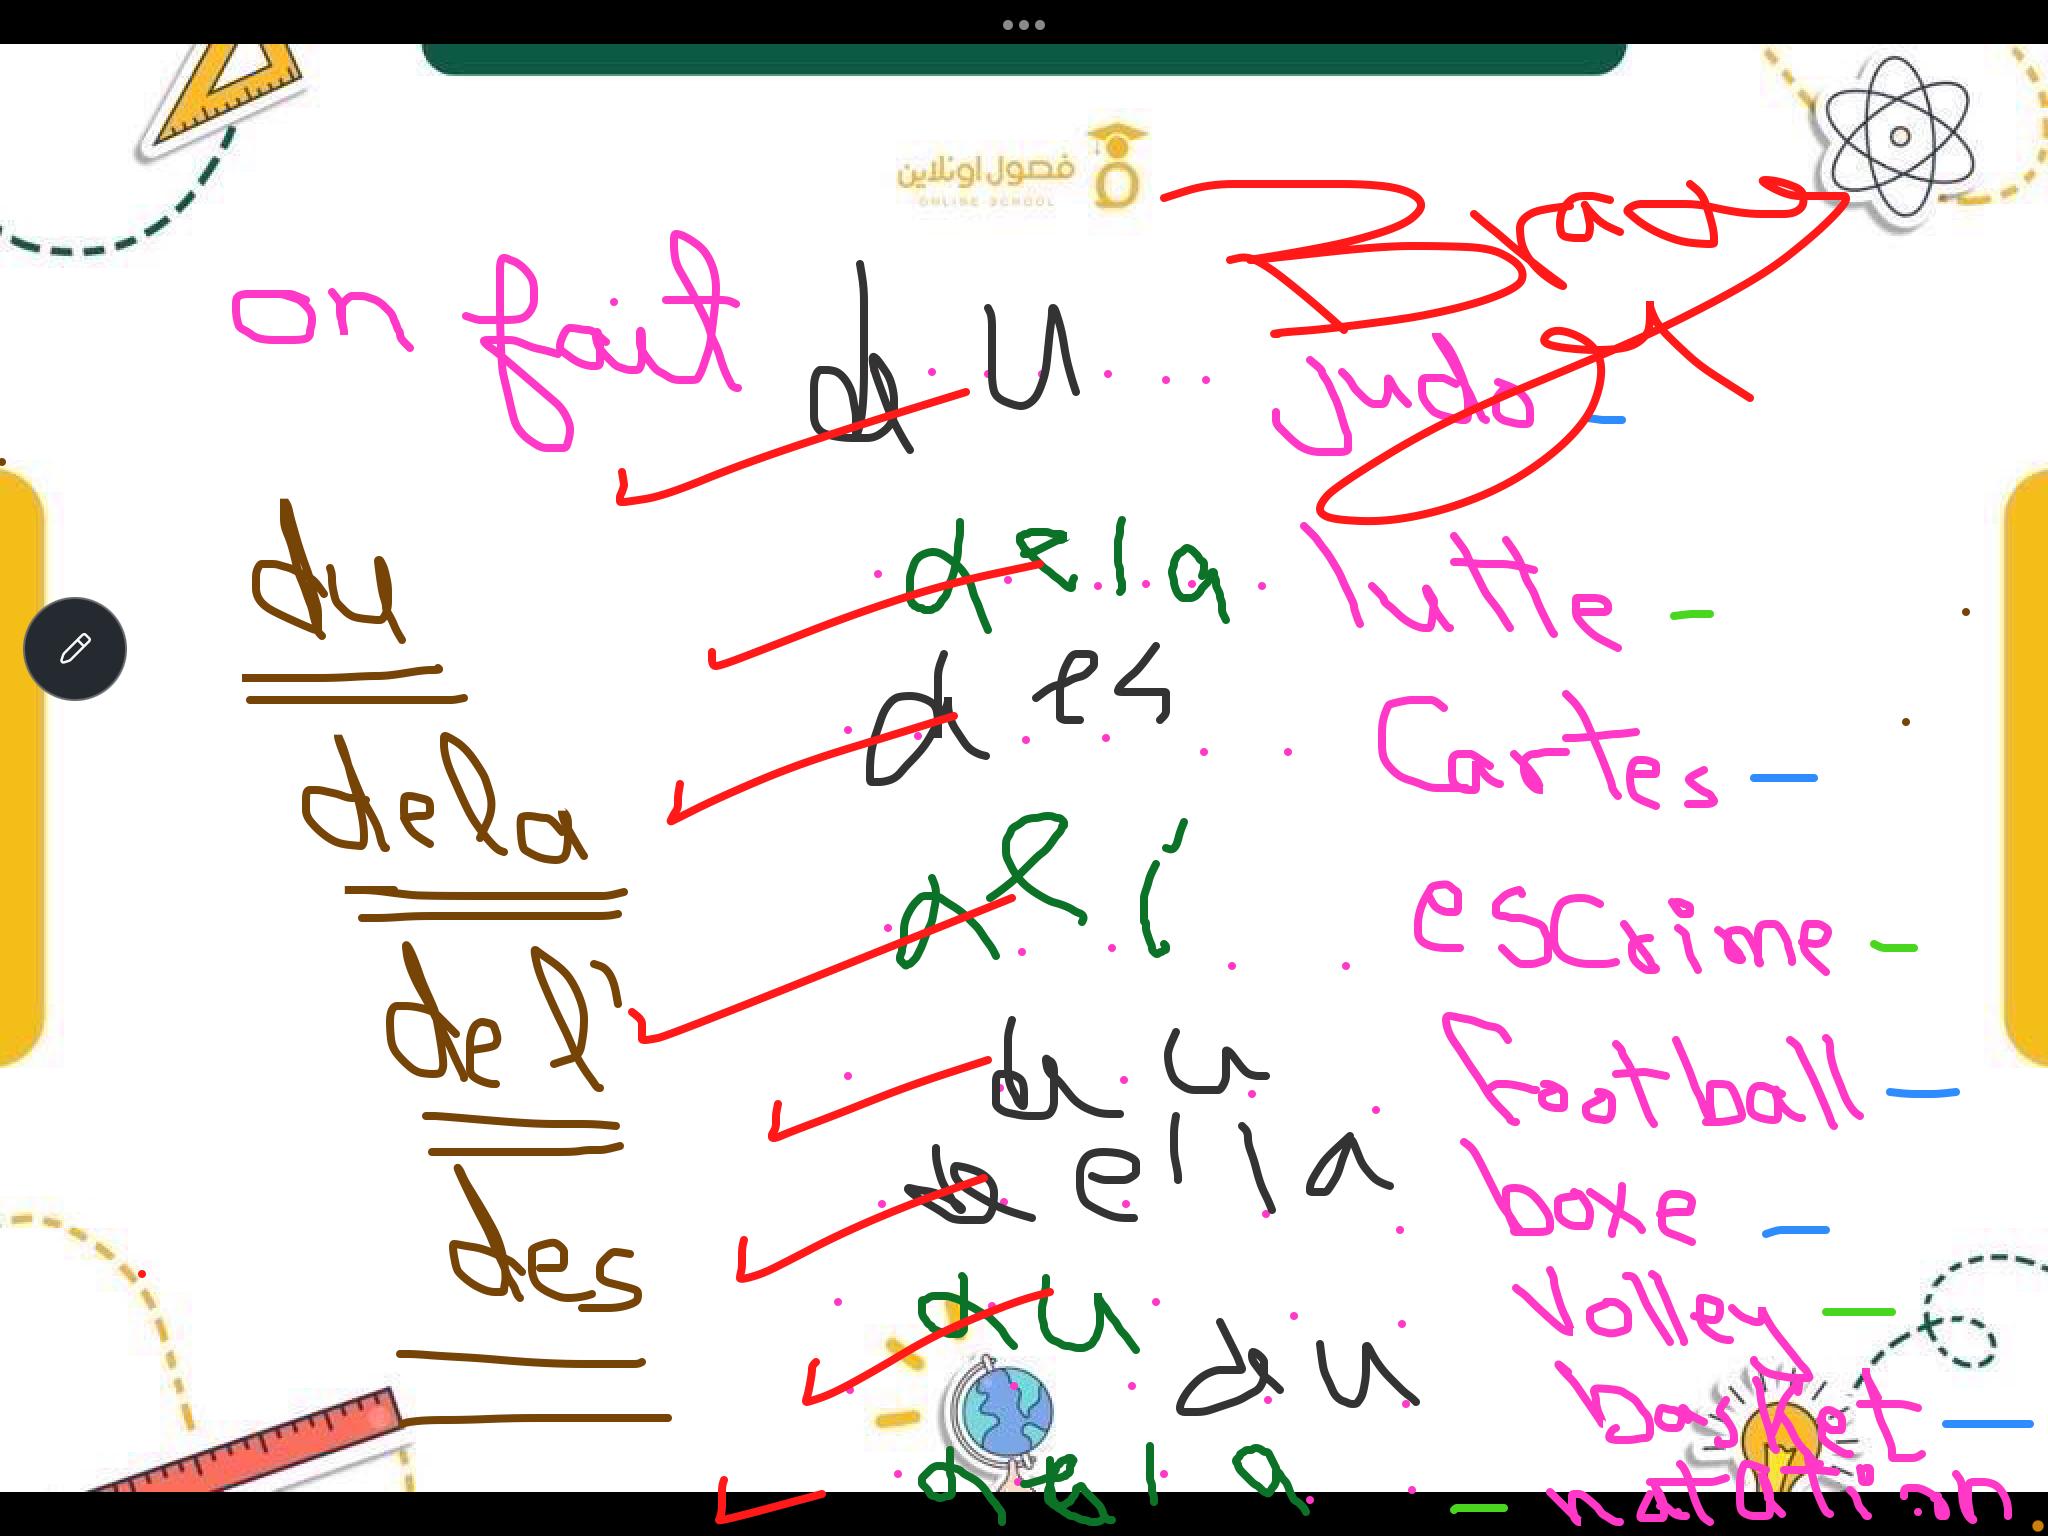 فصول اونلاين
ONLINE SCHOOL
on fait du judo
du
de la lutte
des cartes
de la
de l' escrime
de l'
du football
de l la boxe
des
du volley
du basket
de la natation